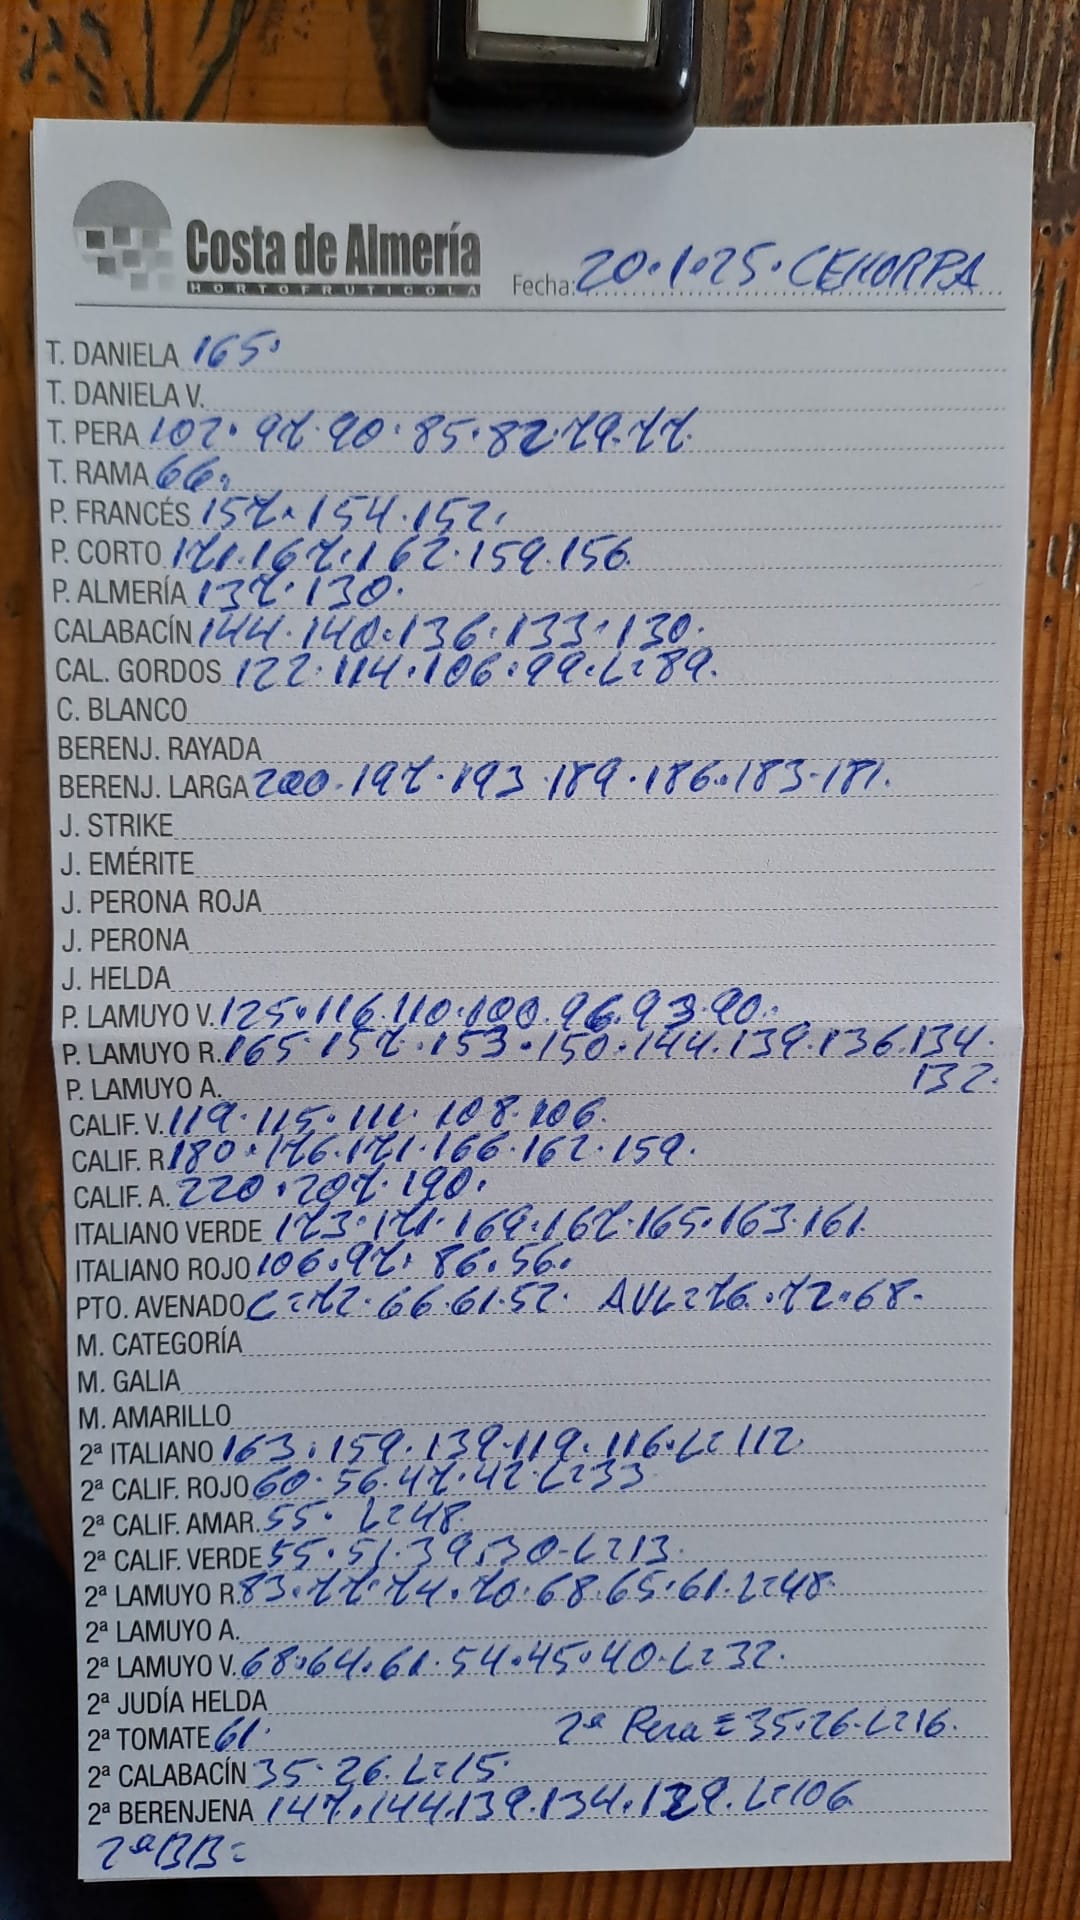 Costa de Almería
HORTOFRUTICOLA
Fecha: 20.1.25. CEHORPA
T. DANIELA 165.
T. DANIELA V.
T. PERA 102. 97. 90. 85. 82. 79. 77.
T. RAMA 66.
P. FRANCÉS 157. 154. 152.
P. CORTO 171. 167. 162. 159. 156.
P. ALMERÍA 137. 130.
CALABACÍN 144. 140. 136. 133. 130.
CAL. GORDOS 122. 114. 106. 99. L=89.
C. BLANCO
BERENJ. RAYADA
BERENJ. LARGA 200. 197. 193. 189. 186. 183. 181.
J. STRIKE
J. EMÉRITE
J. PERONA ROJA
J. PERONA
J. HELDA
P. LAMUYO V. 125. 116. 110. 100. 96. 93. 90.
P. LAMUYO R. 165. 157. 153. 150. 144. 139. 136. 134.
132.
P. LAMUYO A.
CALIF. V. 119. 115. 111. 108. 106.
CALIF. R 180. 176. 171. 166. 162. 159.
CALIF. A. 220. 207. 190.
ITALIANO VERDE 173. 171. 169. 167. 165. 163. 161.
ITALIANO ROJO 106. 97. 86. 56.
PTO. AVENADO C=72. 66. 61. 52. AVL=76. 72. 68.
M. CATEGORÍA
M. GALIA
M. AMARILLO
2ª ITALIANO 163. 159. 139. 119. 116. L=112
2ª CALIF. ROJO 60. 56. 47. 42. L=33
2ª CALIF. AMAR. 55. L=48.
2ª CALIF. VERDE 55. 51. 39. 30. L=13.
2ª LAMUYO R. 83. 77. 74. 70. 68. 65. 61. L=48.
2ª LAMUYO A.
2ª LAMUYO V. 68. 64. 61. 54. 45. 40. L=32.
2ª JUDÍA HELDA
2ª TOMATE 61. 2ª Pera = 35. 26. L=16.
2ª CALABACÍN 35. 26. L=15.
2ª BERENJENA 147. 144. 139. 134. 129. L=106
2ª BB=